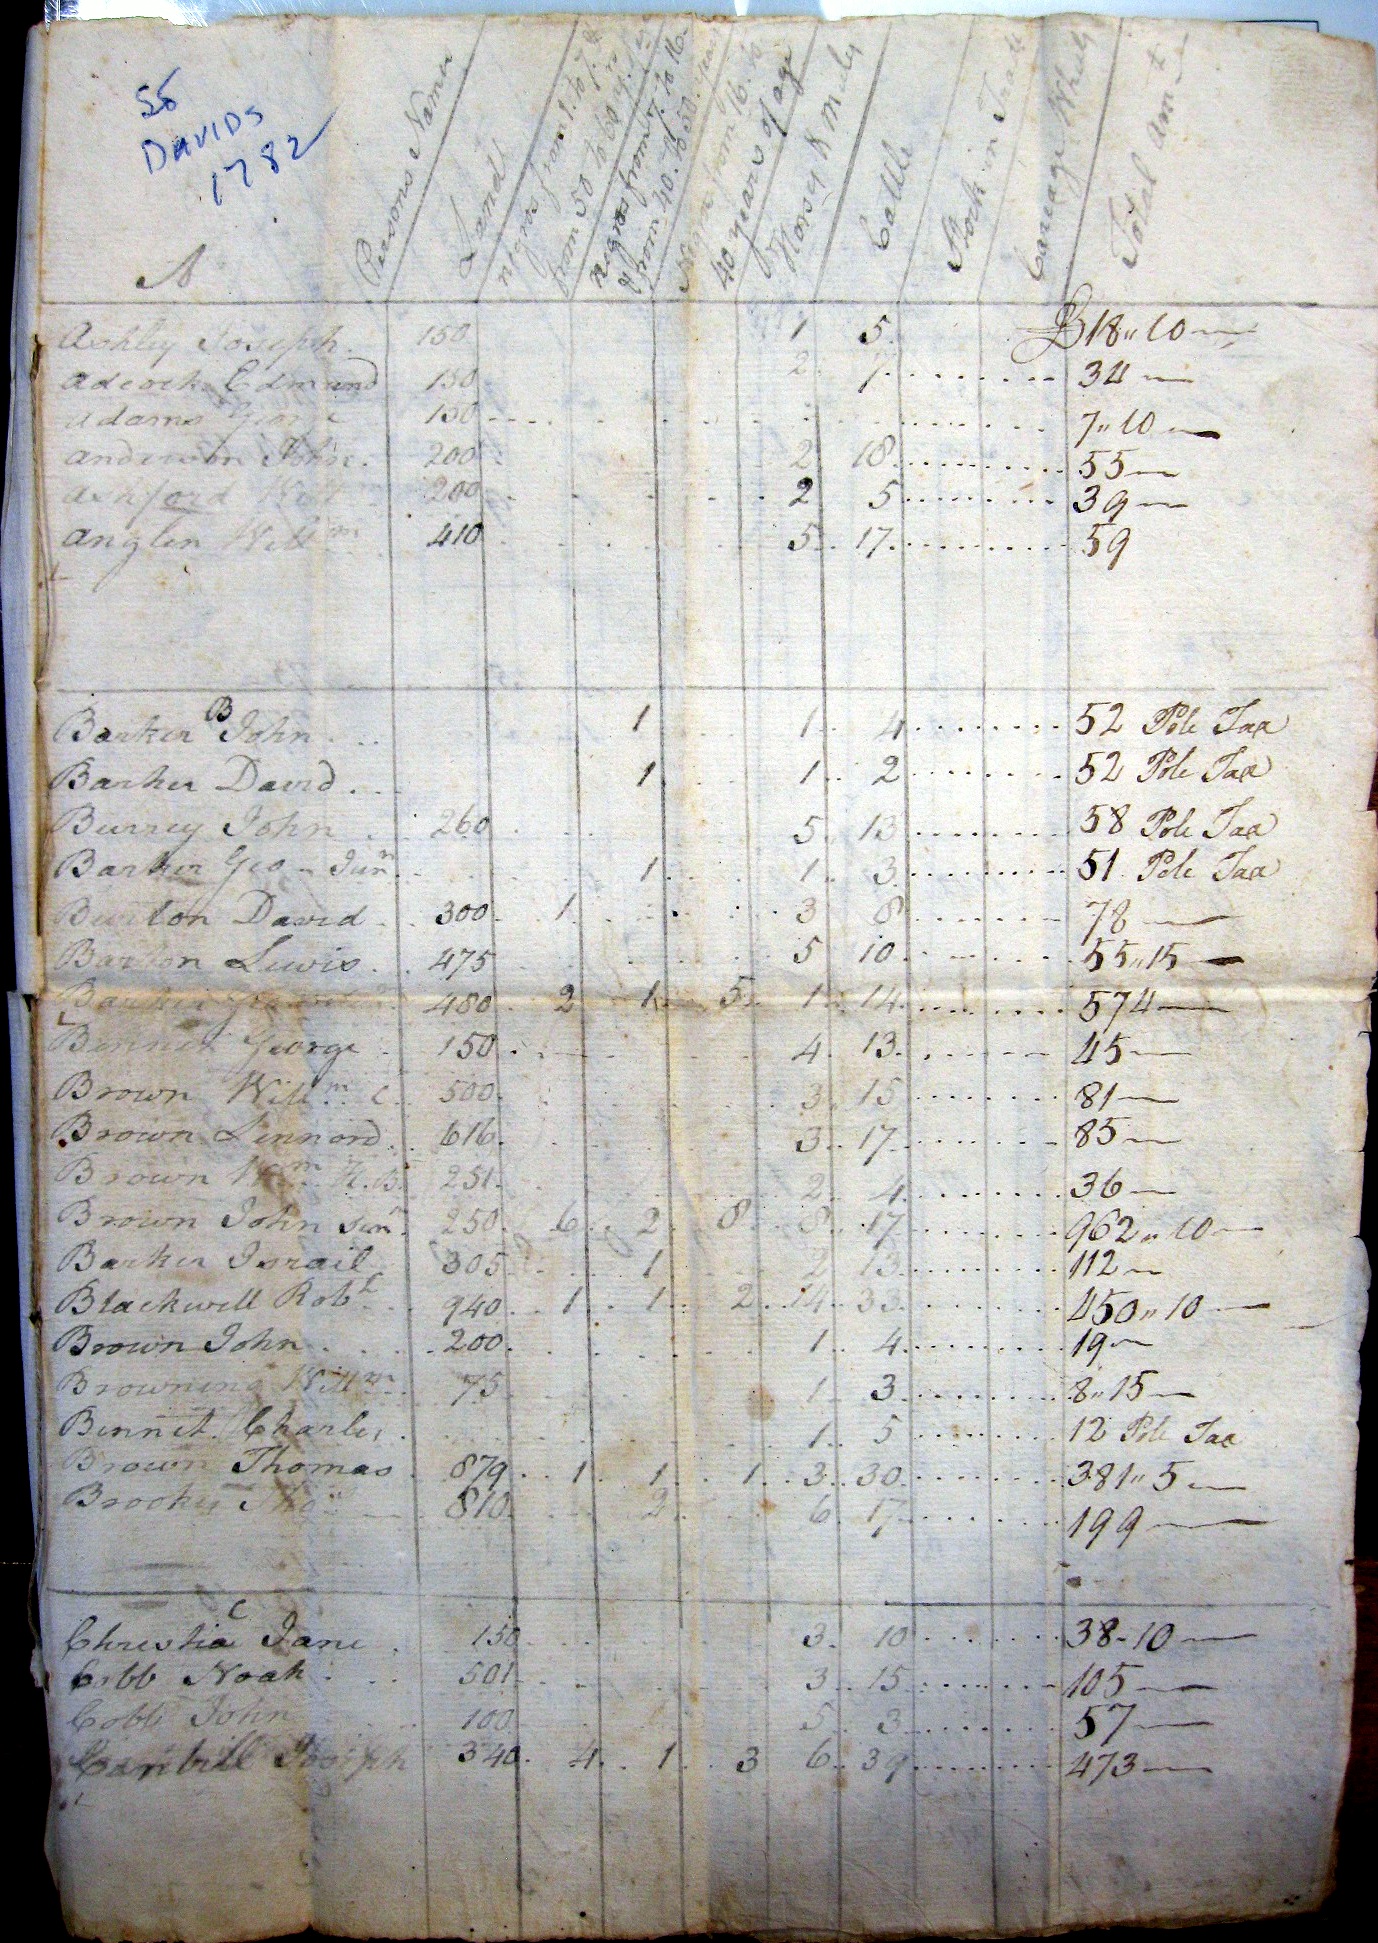 56
DAVIDS
1782
A
Persons Names
Land
negros from 1. to 7. &
from 50 to 60 
negros from 7. to 16.
& from 40. to 50. years
Negros from 16. to
40 years of age
Horses & Mules
Cattle
Stock in Trade
Carriage Wheels
Total Amt
Ashly Joseph 150 1 5 £18"10
Adcock Edmund 150 2 7 34
Adams George 150 7"10
Anderson John 200 2 18 55
Ashford Will 200 2 5 39
Anglin Willm 410 5 17 59
B
Barker John 1 1 4 52 Pole Tax
Barker David 1 1 2 52 Pole Tax
Burrey John 260 5 13 58 Pole Tax
Barker Geo - Junr 1 1 3 51 Pole Tax
Burton David 300 1 3 8 78
Barton Lewis 475 5 10 55"15
Barker 480 2 1 5 1 14 574
Bennet George 150 4 13 45
Brown Willm C 500 3 15 81
Brown Lennord 616 3 17 85
Brown Wm H.B. 251 2 4 36
Brown John Junr 250 6 2 8 8 17 962"10
Barker Israil 305 1 2 13 112
Blackwell Robt 940 1 1 2 14 33 450"10
Brown John 200 1 4 19
Browning Willm 75 1 3 8"15
Bennet Charles 1 5 12 Pole Tax
Brown Thomas 879 1 1 1 3 30 381"5
Brooks 810 2 6 17 199
C
Christia Jane 150 3 10 38-10
Cobb Noah 501 3 15 105
Cobb John 100 5 3 57
Canbill Joseph 340 4 1 3 6 39 473